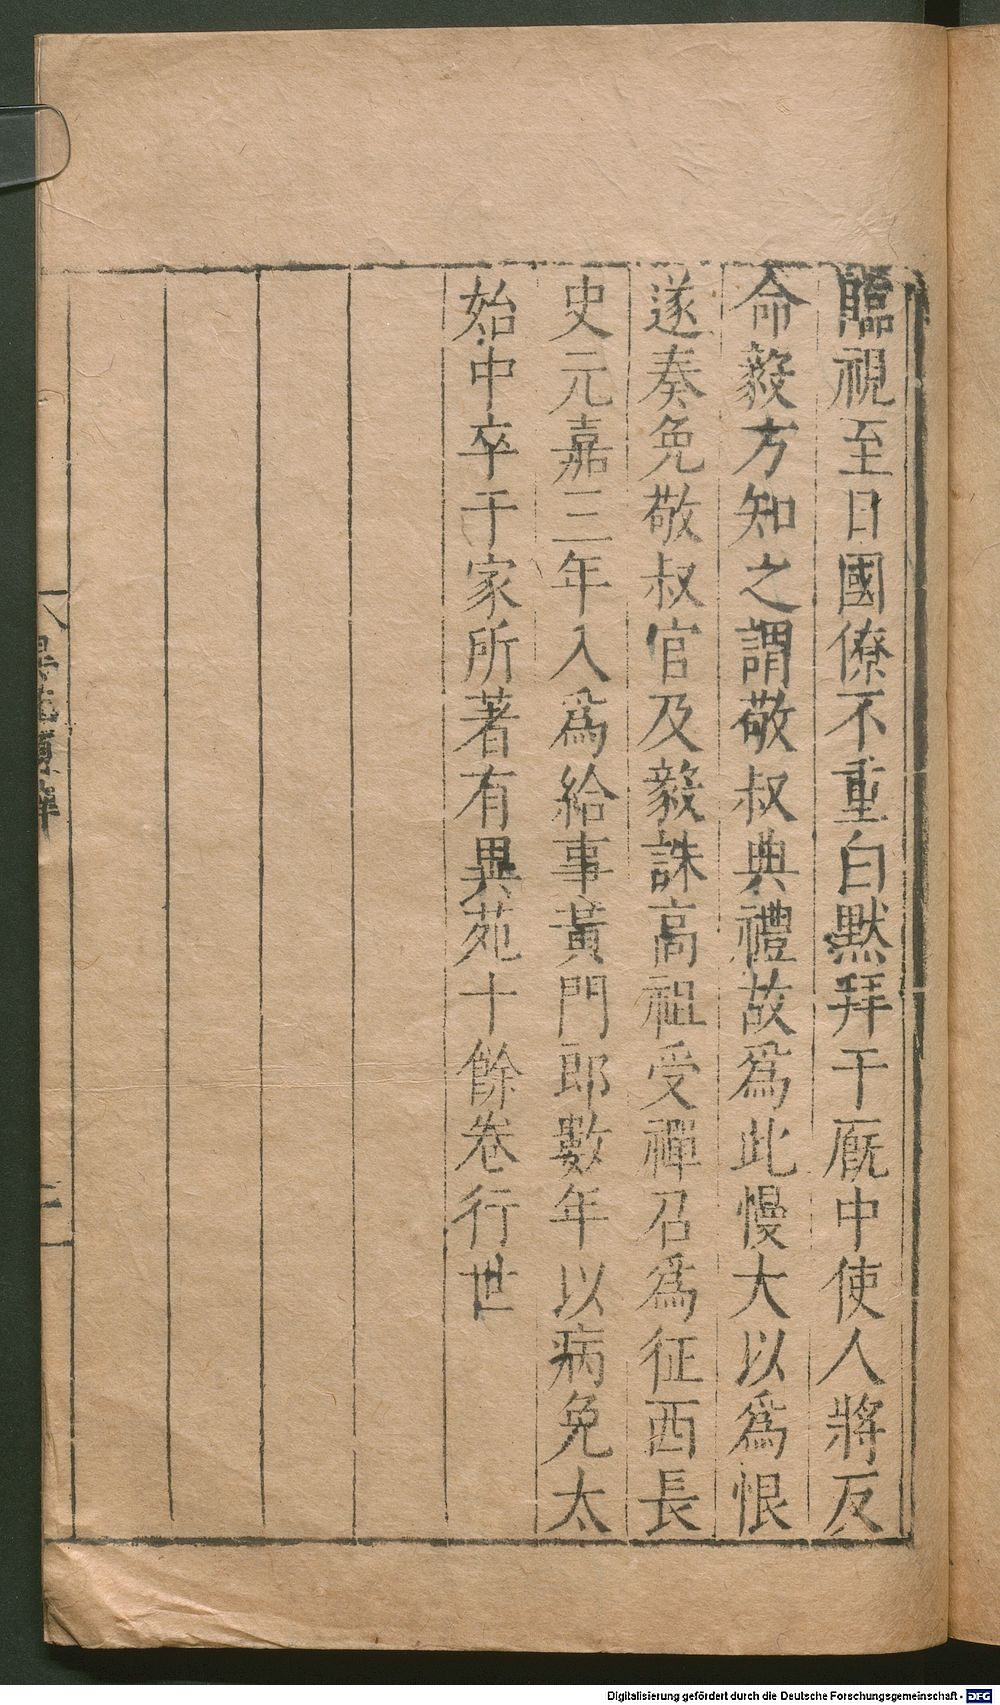 臨視至日國僚不重白默拜于廐中使人將反
命毅方知之謂敬叔典禮故爲此慢大以爲恨
遂奏免敬叔官及毅誅高祖受禪召爲征西長
史元嘉三年入爲給事黃門郎數年以病免太
始中卒于家所著有異苑十餘卷行世
Digitalisierung gefördert durch die Deutsche Forschungsgemeinschaft - DFG